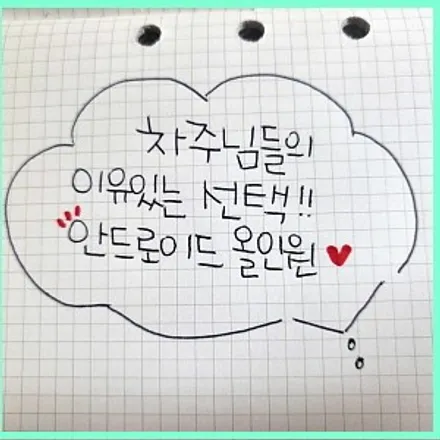 차주님들의
이유있는 선택!!
안드로이드 올인원